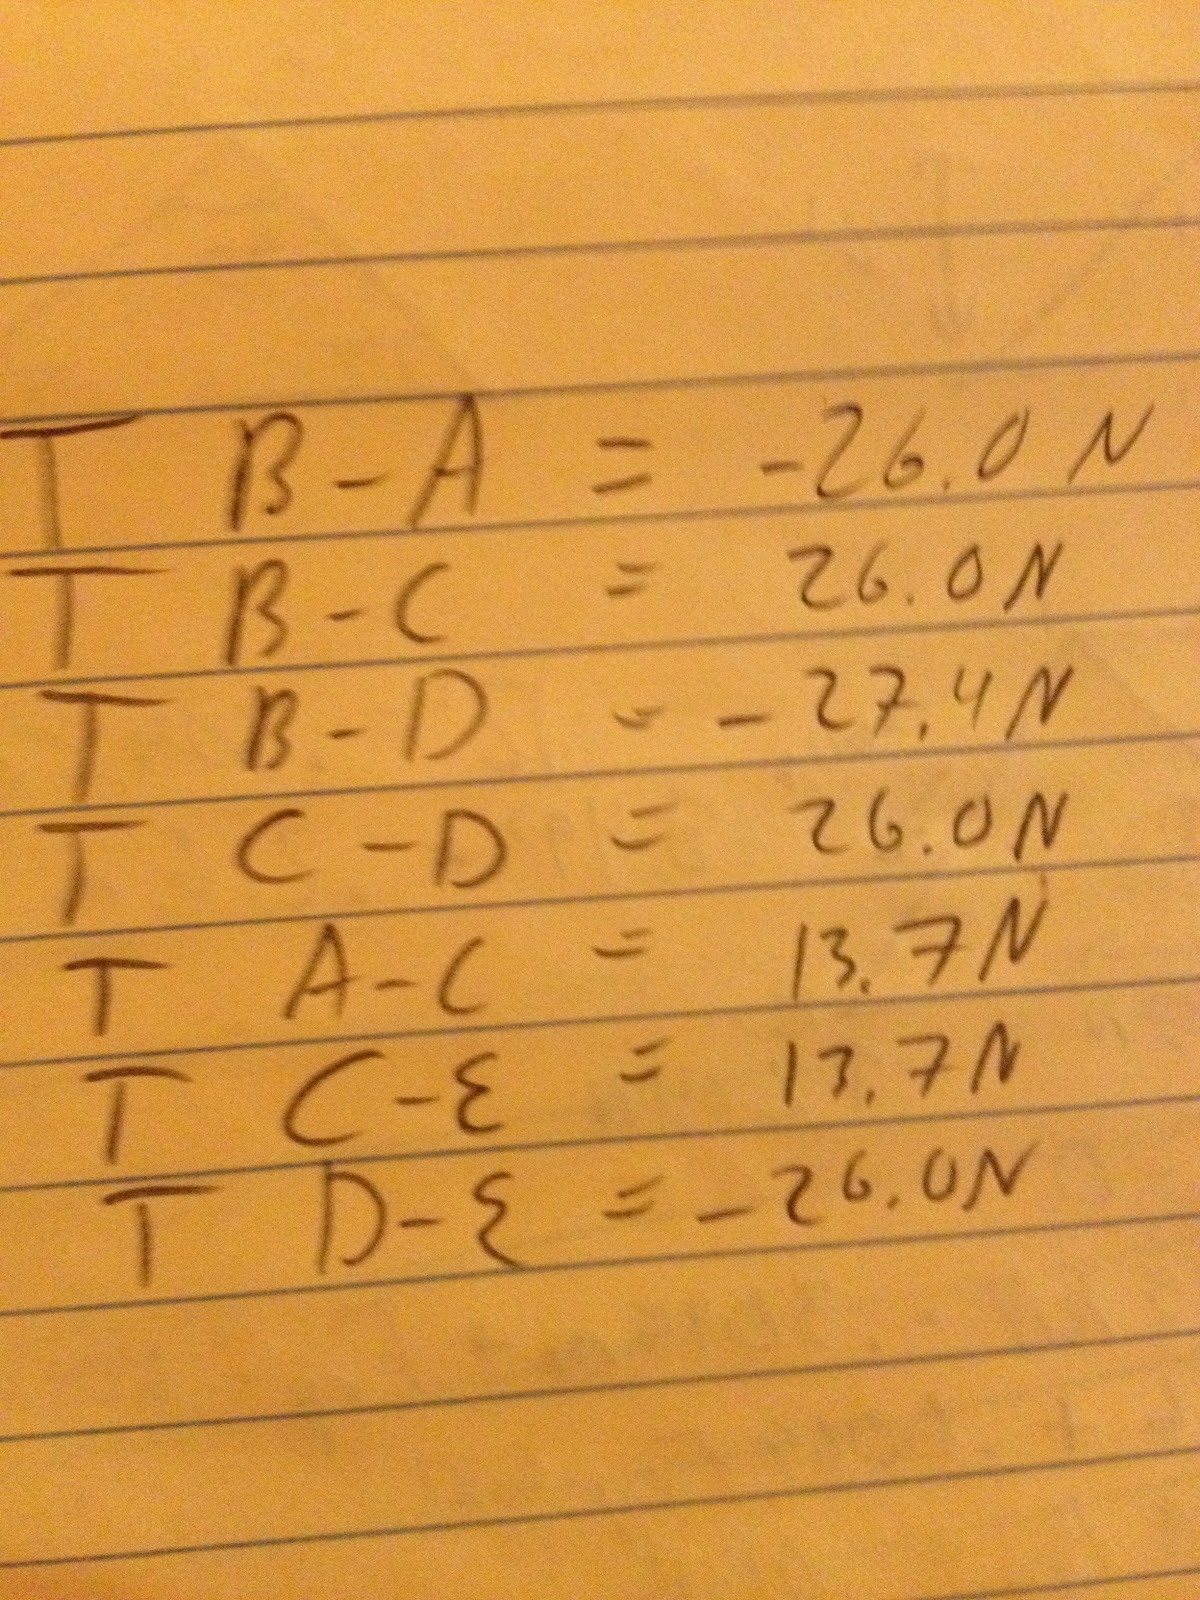 T B-A = -26.0 N
T B-C = 26.0 N
T B-D = -27.4 N
T C-D = 26.0 N
T A-C = 13.7 N
T C-E = 13.7 N
T D-E = -26.0 N